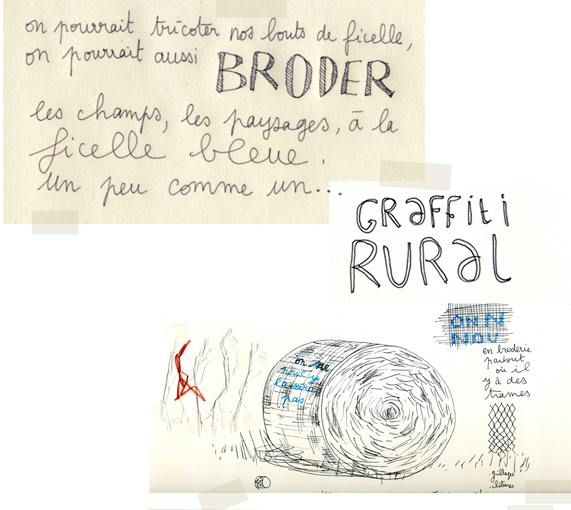 on pourrait tricoter nos bouts de ficelle,
on pourrait aussi BRODER
les champs, les paysages, à la
ficelle bleue.
un peu comme un...
GRAFFITI
RURAL
ON NE
NOU
en broderie
partout
où il
y à des
trames
on ne
nous y
pas
grillages
clôtures